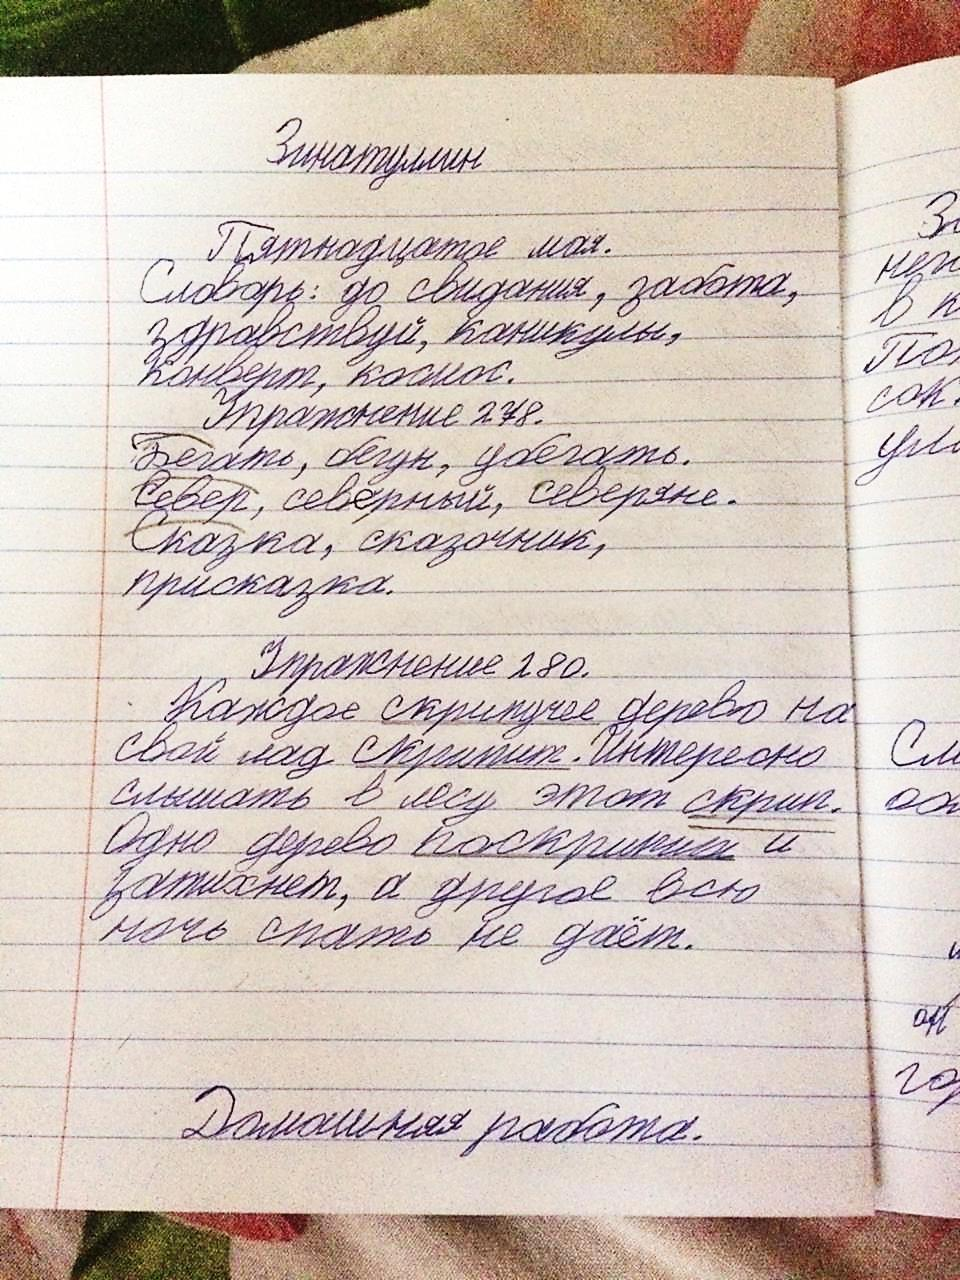 Зинатуллин
Пятнадцатое мая.
Словарь: до свидания, забота,
здравствуй, каникулы,
конверт, космос.
Упражнение 278.
Бегать, бегун, убегать.
Север, северный, северяне.
Сказка, сказочник,
присказка.
Упражнение 280.
Каждое скрипучее дерево на
свой лад скрипит. Интересно
слышать в лесу этот скрип.
Одно дерево и
затихнет, а другое всю
ночь спать не даёт.
Домашняя работа.